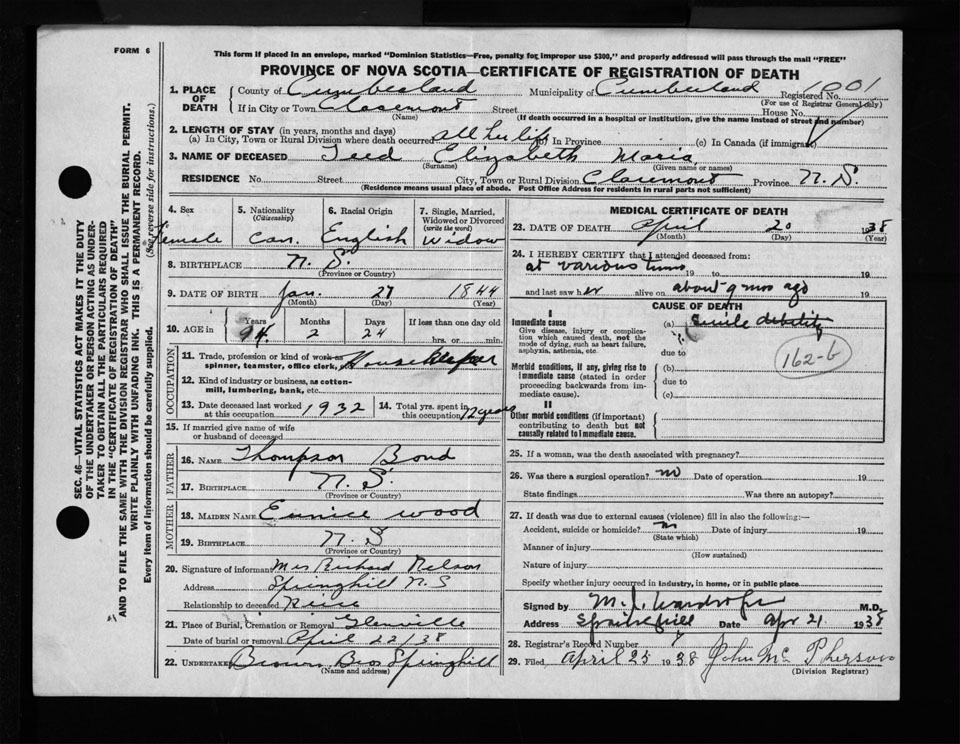 FORM 6
This form if placed in an envelope, marked "Dominion Statistics—Free, penalty for improper use $300," and properly addressed will pass through the mail "FREE"
PROVINCE OF NOVA SCOTIA—CERTIFICATE OF REGISTRATION OF DEATH
SEC. 46—VITAL STATISTICS ACT MAKES IT THE DUTY
OF THE UNDERTAKER OR PERSON ACTING AS UNDER-
TAKER TO OBTAIN ALL THE PARTICULARS REQUIRED
IN THE "CERTIFICATE OF REGISTRATION OF DEATH"
AND TO FILE THE SAME WITH THE DIVISION REGISTRAR WHO SHALL ISSUE THE BURIAL PERMIT.
WRITE PLAINLY WITH UNFADING INK. THIS IS A PERMANENT RECORD.
Every item of information should be carefully supplied. (See reverse side for instructions.)
1. PLACE OF DEATH
County of Cumberland Municipality of Cumberland Registered No. 1001
(For use of Registrar General only)
If in City or Town Claremont Street House No.
(Name) (If death occurred in a hospital or institution, give the name instead of street and number)
2. LENGTH OF STAY (in years, months and days)
(a) In City, Town or Rural Division where death occurred all her life (b) In Province (c) In Canada (if immigrant)
3. NAME OF DECEASED Teed Elizabeth Maria
(Surname) (Given name or names)
RESIDENCE No. Street City, Town or Rural Division Claremont Province N. S.
(Residence means usual place of abode. Post Office Address for residents in rural parts not sufficient)
4. Sex Female
5. Nationality (Citizenship) Can.
6. Racial Origin English
7. Single, Married, Widowed or Divorced (write the word) Widow
8. BIRTHPLACE N. S.
(Province or Country)
9. DATE OF BIRTH Jan. 27 1844
(Month) (Day) (Year)
10. AGE in Years 94 Months 2 Days 24 If less than one day old
hrs. or min.
OCCUPATION
11. Trade, profession or kind of work as spinner, teamster, office clerk, House Keeper
12. Kind of industry or business, as cotton-mill, lumbering, bank, etc.
13. Date deceased last worked at this occupation 1932
14. Total yrs. spent in this occupation 12 years
15. If married give name of wife or husband of deceased
FATHER
16. NAME Thompson Bond
17. BIRTHPLACE N. S.
(Province or Country)
MOTHER
18. MAIDEN NAME Eunice Wood
19. BIRTHPLACE N. S
(Province or Country)
20. Signature of informant Mrs Richard Nelson
Address Springhill N. S
Relationship to deceased Niece
21. Place of Burial, Cremation or Removal Glenville
Date of burial or removal April 22/38
22. Undertaker Brown Bros Springhill
(Name and address)
MEDICAL CERTIFICATE OF DEATH
23. DATE OF DEATH April 20 1938
(Month) (Day) (Year)
24. I HEREBY CERTIFY that I attended deceased from:
at various times 19 to 19
and last saw her alive on about 9 mos ago 19
CAUSE OF DEATH
I
Immediate cause (a) Senile debility
Give disease, injury or complica-
tion which caused death, not the
mode of dying, such as heart failure,
asphyxia, asthenia, etc.
due to
162-b
Morbid conditions, if any, giving rise to (b)
immediate cause (stated in order
proceeding backwards from im-
mediate cause).
due to
(c)
II
Other morbid conditions (if important)
contributing to death but not
causally related to immediate cause.
25. If a woman, was the death associated with pregnancy?
26. Was there a surgical operation? no Date of operation 19
State findings Was there an autopsy?
27. If death was due to external causes (violence) fill in also the following:—
Accident, suicide or homicide? no Date of injury 19
(State which)
Manner of injury
(How sustained)
Nature of injury
Specify whether injury occurred in industry, in home, or in public place
Signed by M. J. Wardrope M.D.
Address Springhill Date Apr 21 1938
28. Registrar's Record Number
29. Filed April 25 1938 John Mc Pherson
(Division Registrar)